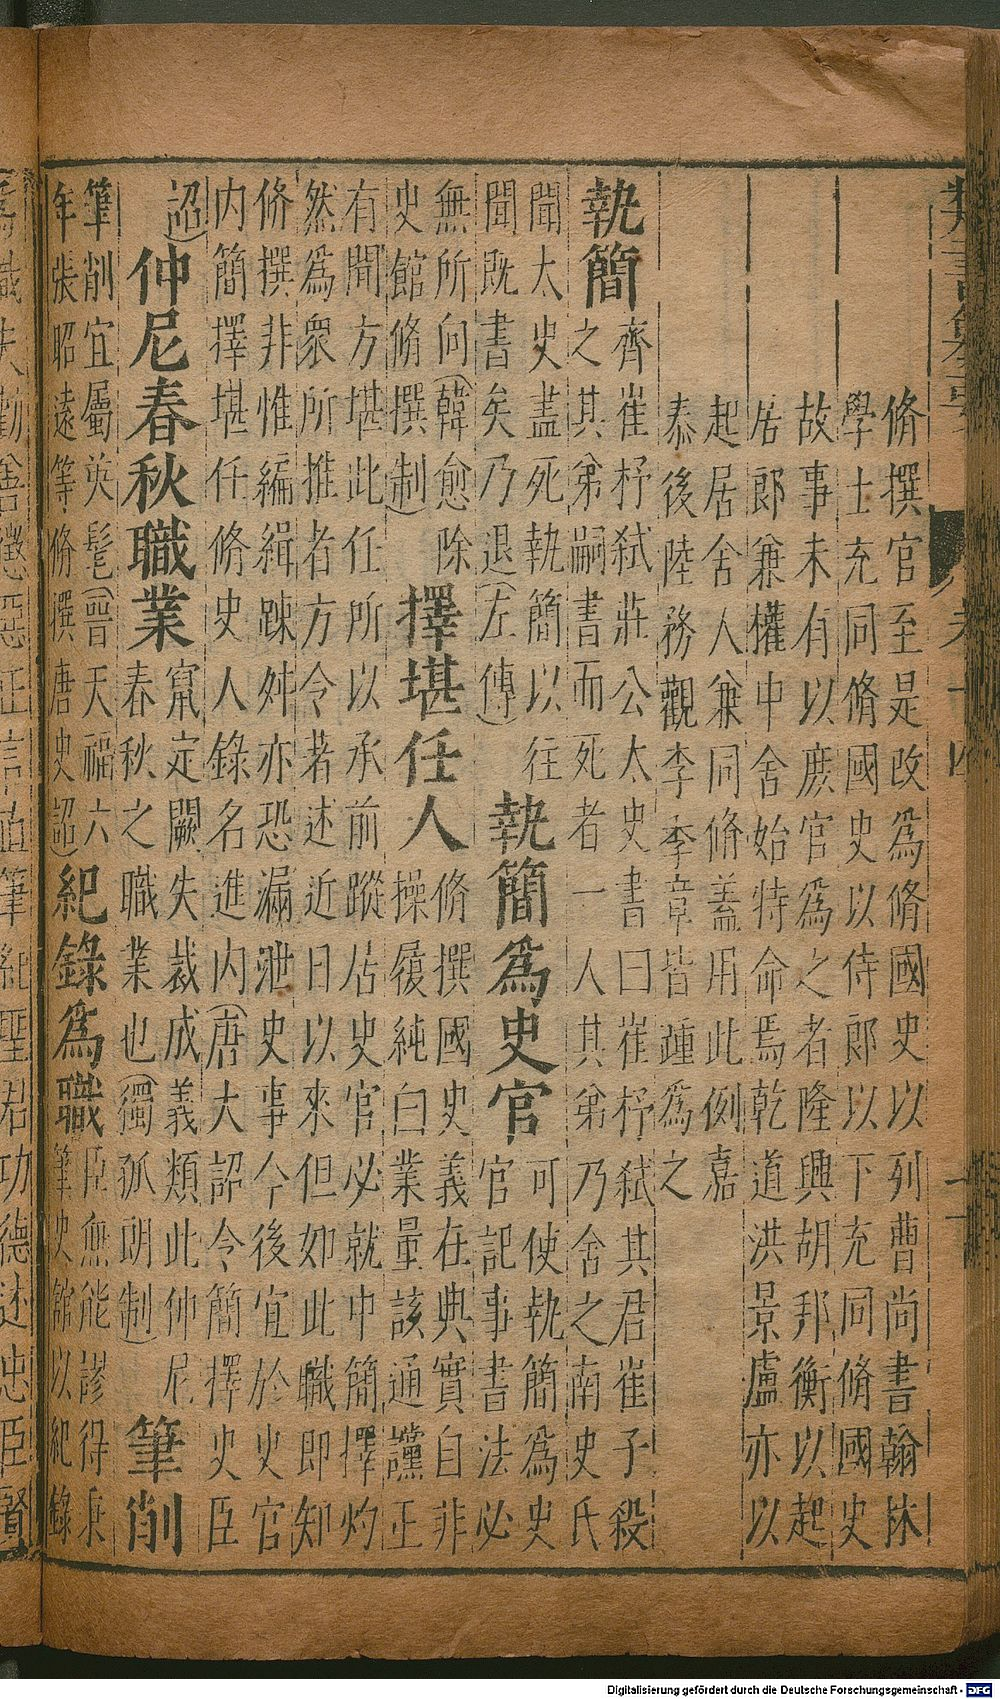 脩撰官至是改爲脩國史以列曹尚書翰林
學士充同脩國史以侍郎以下充同脩國史
故事未有以庶官爲之者隆興胡邦衡以起
居郎兼權中舍始特命焉乾道洪景盧亦以
起居舍人兼同脩蓋用此例嘉
泰後陸務觀李季章皆踵爲之
執簡
齊崔杼弑莊公太史書曰崔杼弑其君崔子殺
之其弟嗣書而死者一人其弟乃舍之南史氏
聞太史盡死執簡以往
聞既書矣乃退(左傳)
執簡爲史官
可使執簡爲史
官記事書法必
無所向(韓愈除
史館脩撰制)
擇堪任人
脩撰國史義在典實自非
操履純白業量該通讜正
有聞方堪此任所以承前蹤居史官必就中簡擇灼
然爲衆所推者方令著述近日以來但如此職即知
脩撰非惟編緝踈舛亦恐漏泄史事今後宜於史官
内簡擇堪任脩史人錄名進内(唐大詔令簡擇史臣
詔)
仲尼春秋職業
竄定闕失裁成義類此仲尼
春秋之職業也(獨孤朗制)
筆削
筆削宜屬英髦(晉天福六
年張昭遠等脩撰唐史詔)
紀錄爲職
臣無能謬得秉
筆史館以紀錄